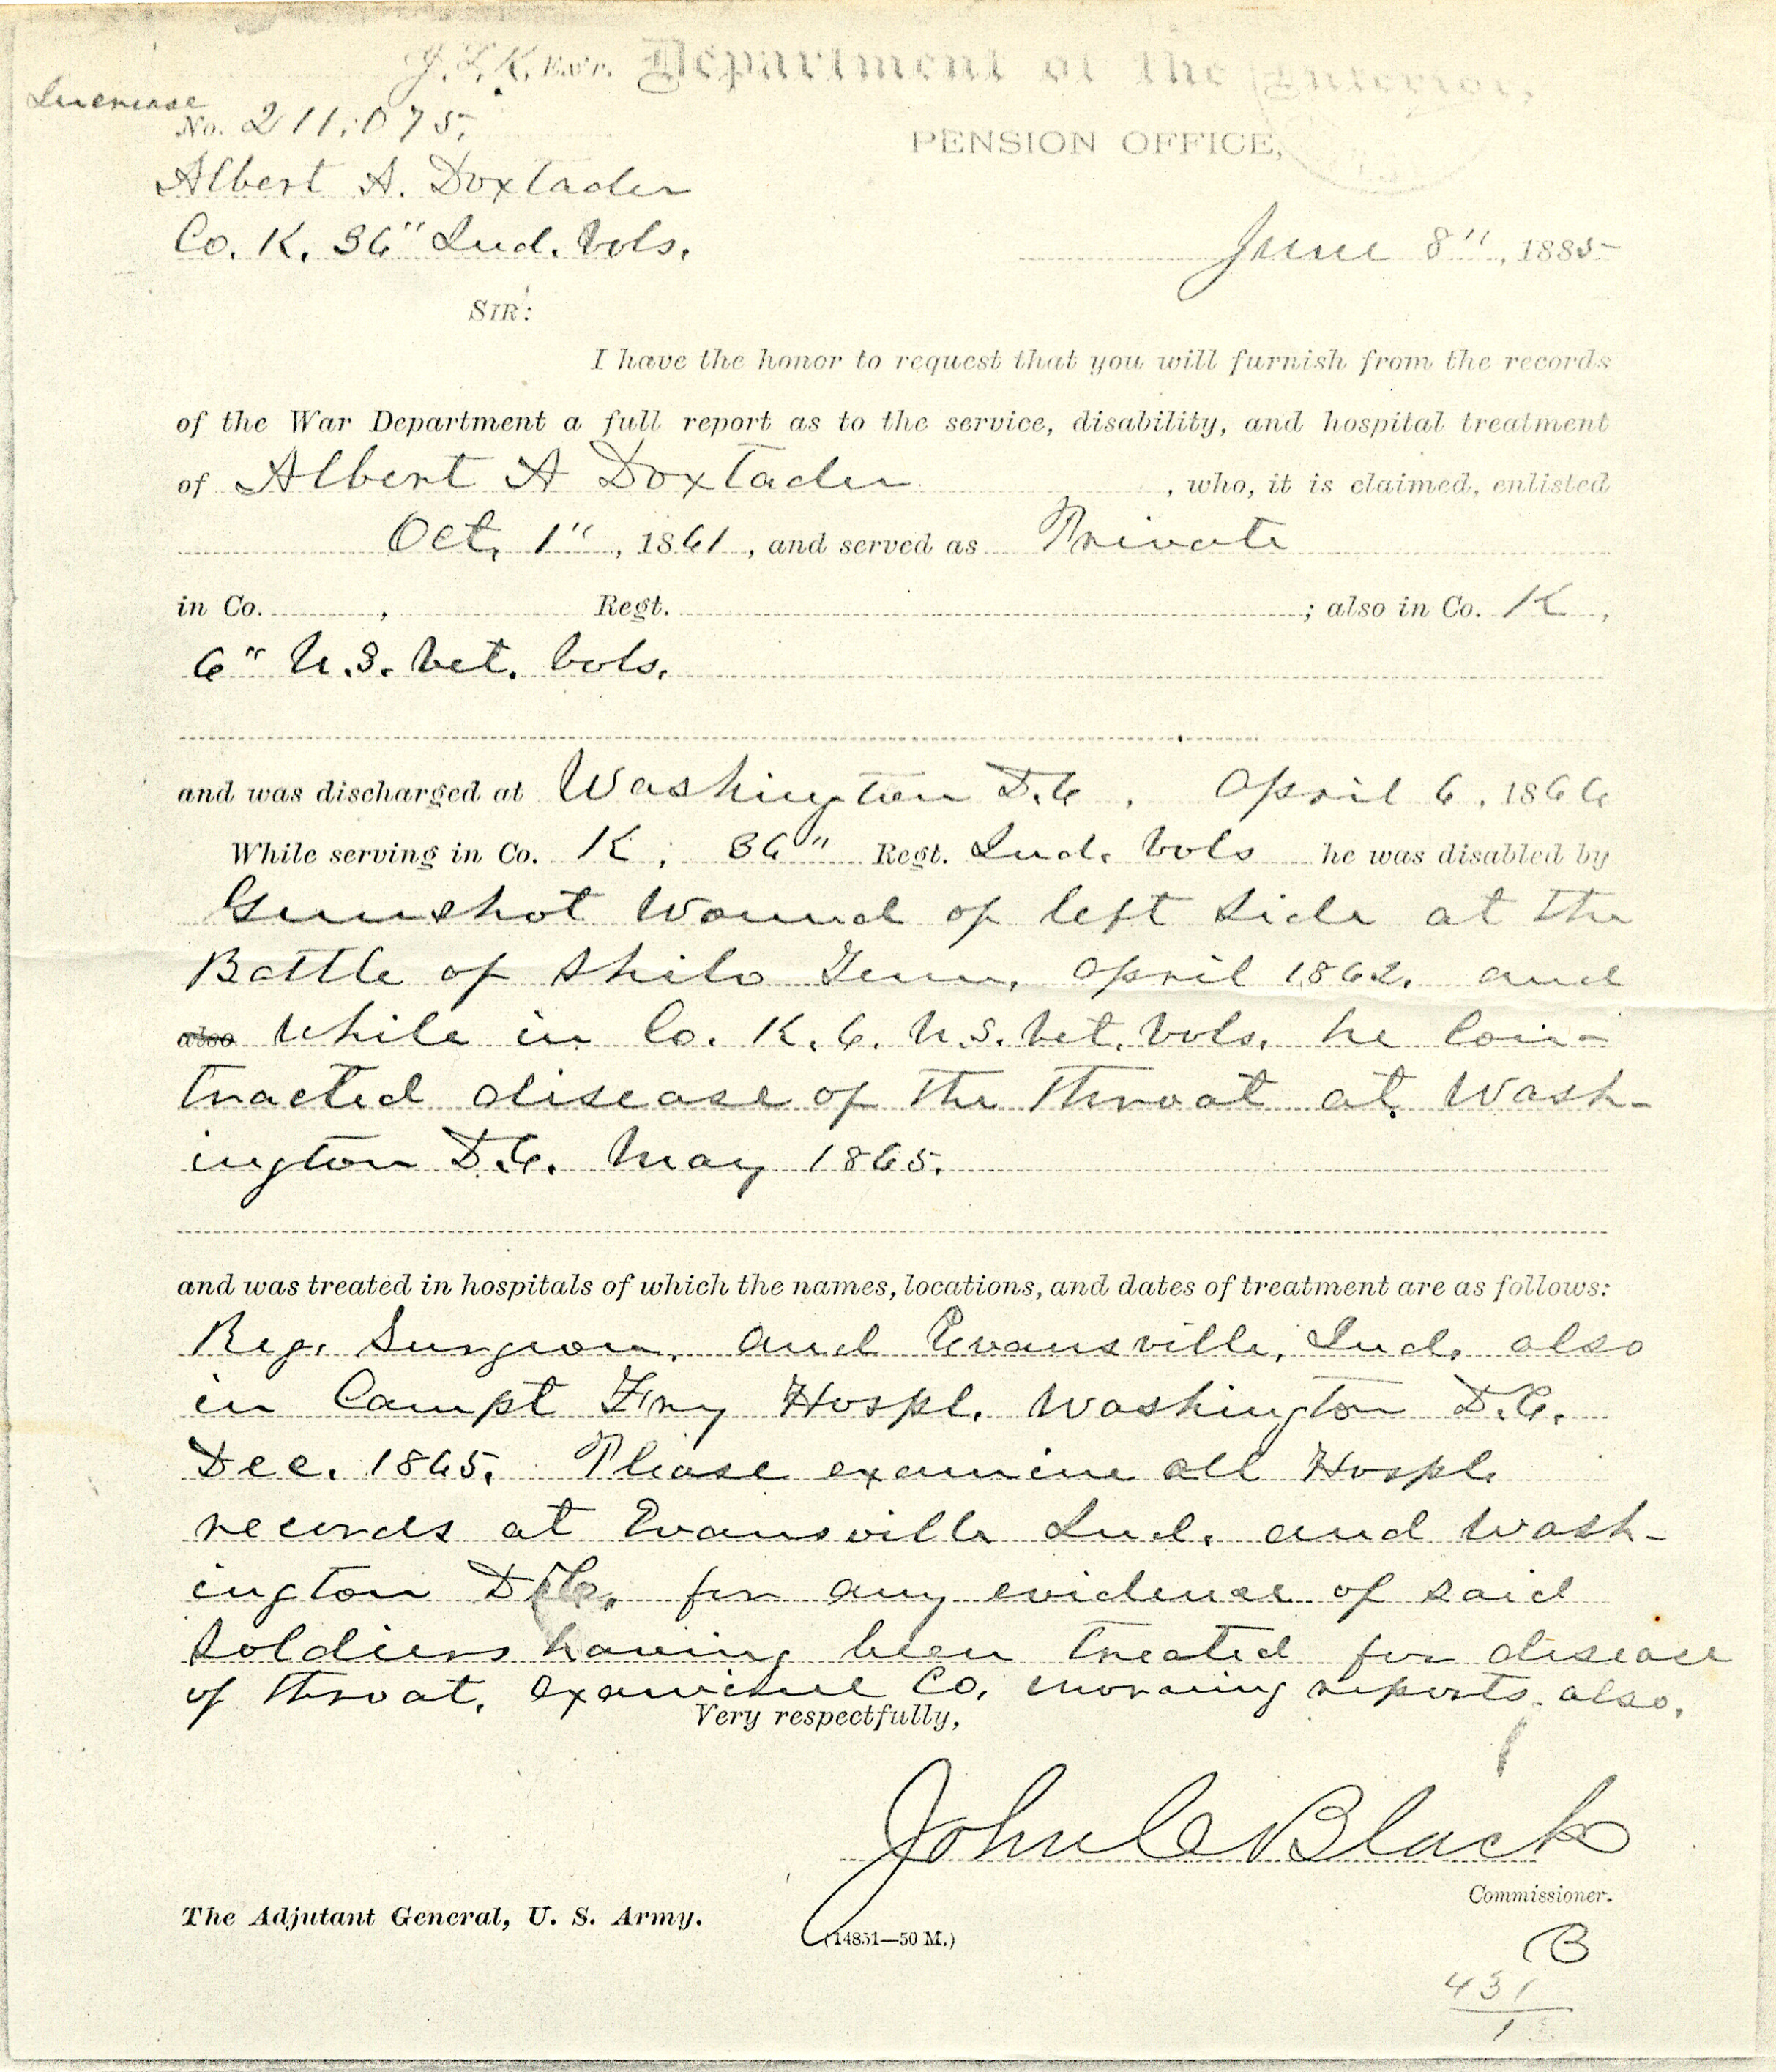 J. L. K. Exr. Department of the Interior,
Increase
No. 211,075,
PENSION OFFICE,
Albert A. Doxtader
Co. K. 36" Ind. Vols.
June 8", 1885
SIR:
I have the honor to request that you will furnish from the records
of the War Department a full report as to the service, disability, and hospital treatment
of Albert A Doxtader, who, it is claimed, enlisted
Oct. 1", 1861, and served as Private
in Co. , Regt. ; also in Co. K,
6" U.S. Vet. Vols.
and was discharged at Washington D.C., April 6, 1866
While serving in Co. K, 36" Regt. Ind. Vols he was disabled by
Gunshot Wound of left side at the
Battle of Shilo Tenn. April 1862. and
also while in Co. K. 6. U.S. Vet. Vols. he Con-
tracted disease of the throat at Wash-
ington D.C. May 1865.
and was treated in hospitals of which the names, locations, and dates of treatment are as follows:
Reg. Surgeon, and Evansville, Ind. also
in Campt Fry Hospl. Washington D.C.
Dec. 1865. Please examine all Hospl.
records at Evansville Ind. and Wash-
ington D.C. for any evidence of said
soldiers having been treated for disease
of throat. Co. morning reports also.
Very respectfully,
John C Black
Commissioner.
The Adjutant General, U. S. Army.
(14851—50 M.)
B
431
1